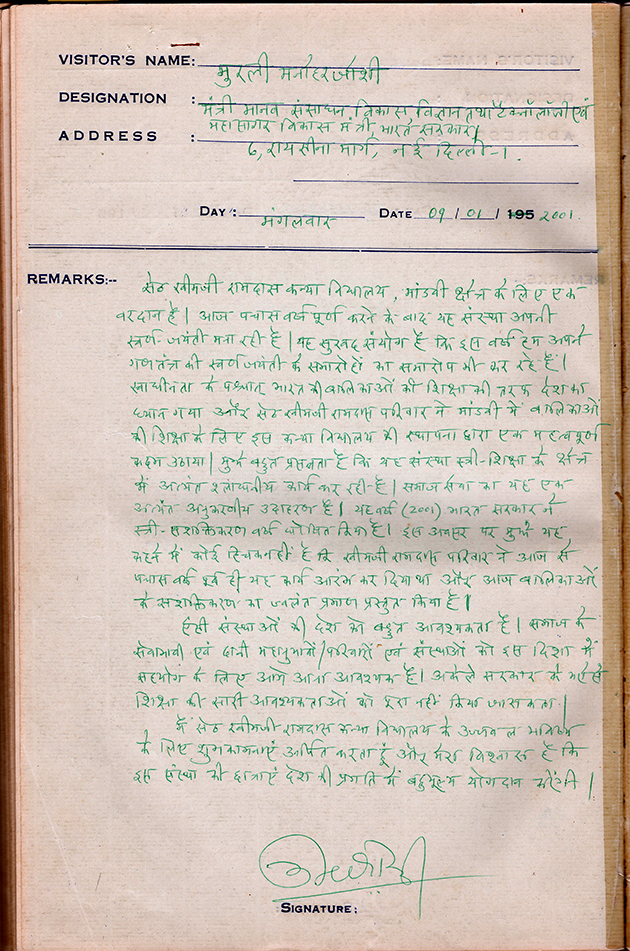 VISITOR'S NAME: मुरली मनोहर जोशी
DESIGNATION : मंत्री मानव संसाधन, विकास विज्ञान तथा टैक्नॉलॉजी एवं
महासागर विकास मंत्री भारत सरकार।
ADDRESS : ६, रायसीना मार्ग, नई दिल्ली-१.
DAY : मंगलवार DATE 09 / 01 / 195 2001.
REMARKS:--
सेठ खीमजी रामदास कन्या विद्यालय, मांडवी क्षेत्र के लिए एक
वरदान है। आज पचास वर्ष पूर्ण करने के बाद यह संस्था अपनी
स्वर्ण जयंती मना रही है। यह सुखद संयोग है कि इस वर्ष हम अपने
गणतंत्र की स्वर्ण जयंती के समारोहों का समारोप भी कर रहे हैं।
स्वाधीनता के पश्चात् भारत की बालिकाओं की शिक्षा की तरफ देश का
ध्यान गया और सेठ खीमजी रामदास परिवार ने मांडवी में बालिकाओं
की शिक्षा के लिए इस कन्या विद्यालय की स्थापना द्वारा एक महत्वपूर्ण
कदम उठाया। मुझे बहुत प्रसन्नता है कि यह संस्था स्त्री-शिक्षा के क्षेत्र
में अत्यंत श्लाघनीय कार्य कर रही है। समाज सेवा का यह एक
अत्यंत अनुकरणीय उदाहरण है। यह वर्ष (2001) भारत सरकार ने
स्त्री-सशक्तिकरण वर्ष घोषित किया है। इस अवसर पर मुझे यह
कहने में कोई हिचक नहीं है कि खीमजी रामदास परिवार ने आज से
पचास वर्ष पूर्व ही यह कार्य आरंभ कर दिया था और आज बालिकाओं
के सशक्तिकरण का ज्वलंत प्रमाण प्रस्तुत किया है।
ऐसी संस्थाओं की देश को बहुत आवश्यकता है। समाज के
सेवाभावी एवं दानी महानुभावों/परिवारों एवं संस्थाओं को इस दिशा में
सहयोग के लिए आगे आना आवश्यक है। अकेले सरकार के भरोसे
शिक्षा की सारी आवश्यकताओं को पूरा नहीं किया जा सकता।
मैं सेठ खीमजी रामदास कन्या विद्यालय के उज्जवल भविष्य
के लिए शुभकामनाएं अर्पित करता हूं और मेरा विश्वास है कि
इस संस्था की छात्राएं देश की प्रगति में बहुमूल्य योगदान करेंगी।
SIGNATURE: